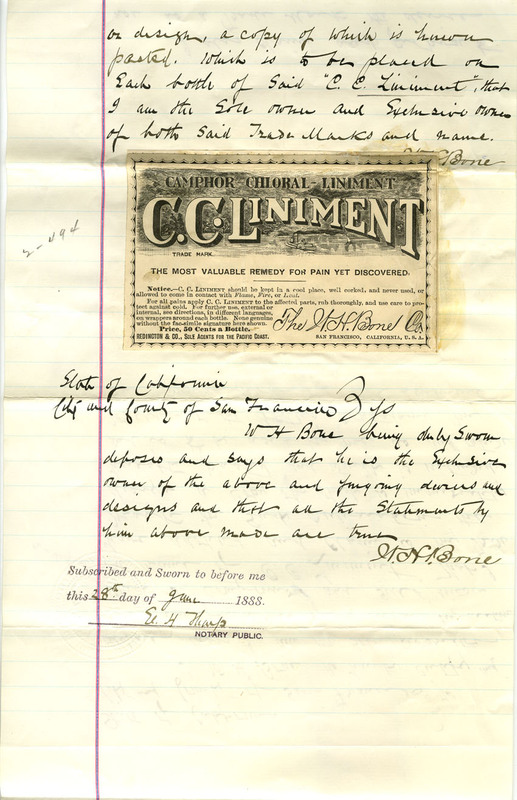 or design, a copy of which is hereon
pasted. Which is to be placed on
Each bottle of Said "C. C. Liniment", that
I am the Sole owner and Exclusive owner
of both Said Trade Marks and name.
W H Bone
CAMPHOR CHLORAL LINIMENT
C.C. LINIMENT
TRADE MARK.
THE MOST VALUABLE REMEDY FOR PAIN YET DISCOVERED.
Notice.—C. C. LINIMENT should be kept in a cool place, well corked, and never used, or
allowed to come in contact with Flame, Fire, or Lead.
For all pains apply C. C. LINIMENT to the affected parts, rub thoroughly, and use care to pro-
tect against cold. For further use, external or
internal, see directions, in different languages,
on wrappers around each bottle. None genuine
without the fac-simile signature here shown.
Price, 50 Cents a Bottle.
REDINGTON & CO., SOLE AGENTS FOR THE PACIFIC COAST.
The W. H. Bone Co
SAN FRANCISCO, CALIFORNIA, U. S. A.
2-494
State of California
City and County of San Francisco } ss
W H Bone being duly Sworn
deposes and says that he is the Exclusive
owner of the above and forgoing devices and
designs and that all the Statements by
him above made are true
W. H. Bone
Subscribed and Sworn to before me
this 28th day of June 1888.
E. H Tharp
NOTARY PUBLIC.